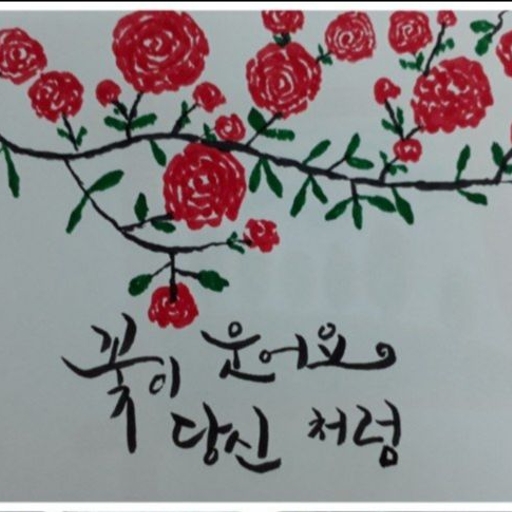 꽃이 운어요
당신 처럼